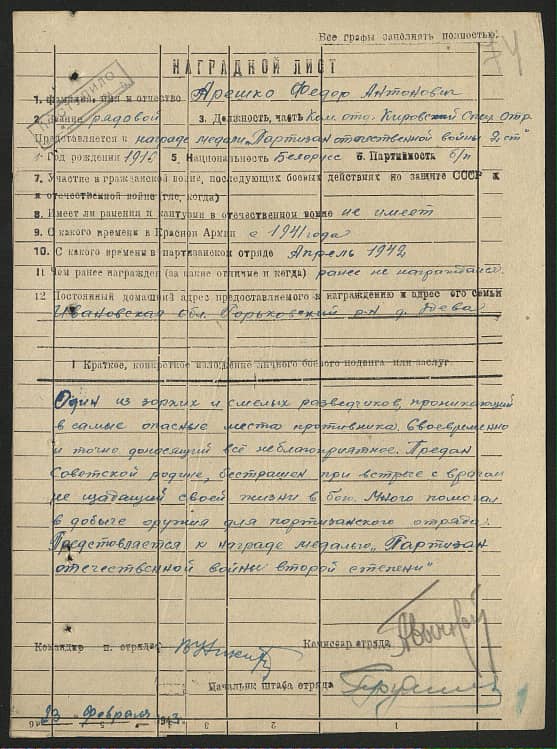 Все графы заполнять полностью.
74
НАГРАДНОЙ ЛИСТ
1. Фамилия, имя и отчество Арешко Федор Антонович
2. Звание рядовой 3. Должность, часть Ком. отд. Кировский Спец. Отр.
Представляется к награде медали „Партизан отечественной войны 2 ст"
4 Год рождения 1916 5. Национальность Белорус 6. Партийность б/п
7. Участие в гражданской войне, последующих боевых действиях по защите СССР и
и отечественной войне (где, когда)
8. Имеет ли ранения и контузии в отечественной войне не имеет
9. С какого времени в Красной Армии с 1941 года
10. С какого времени в партизанском отряде Апрель 1942
11 Чем ранее награжден (за какие отличие и когда) ранее не награждался.
12 Постоянный домашний адрес предоставляемого к награждению и адрес его семьи
Ивановская обл. Горьковский р-н д.
1 Краткое, конкретное изложение личного боевого подвига или заслуг
Один из зорких и смелых разведчиков, проникающий
в самые опасные места противника. Своевременно
и точно доносящий всё неблагоприятное. Предан
Советской родине, бесстрашен при встрече с врагом
не щадящий своей жизни в бою. Много помогал
в добыче оружия для партизанского отряда.
Представляется к награде медалью „Партизан
отечественной войны второй степени"
Командир п. отряда Комиссар отряда
Начальник штаба отряда
23 февраля 1943 г.